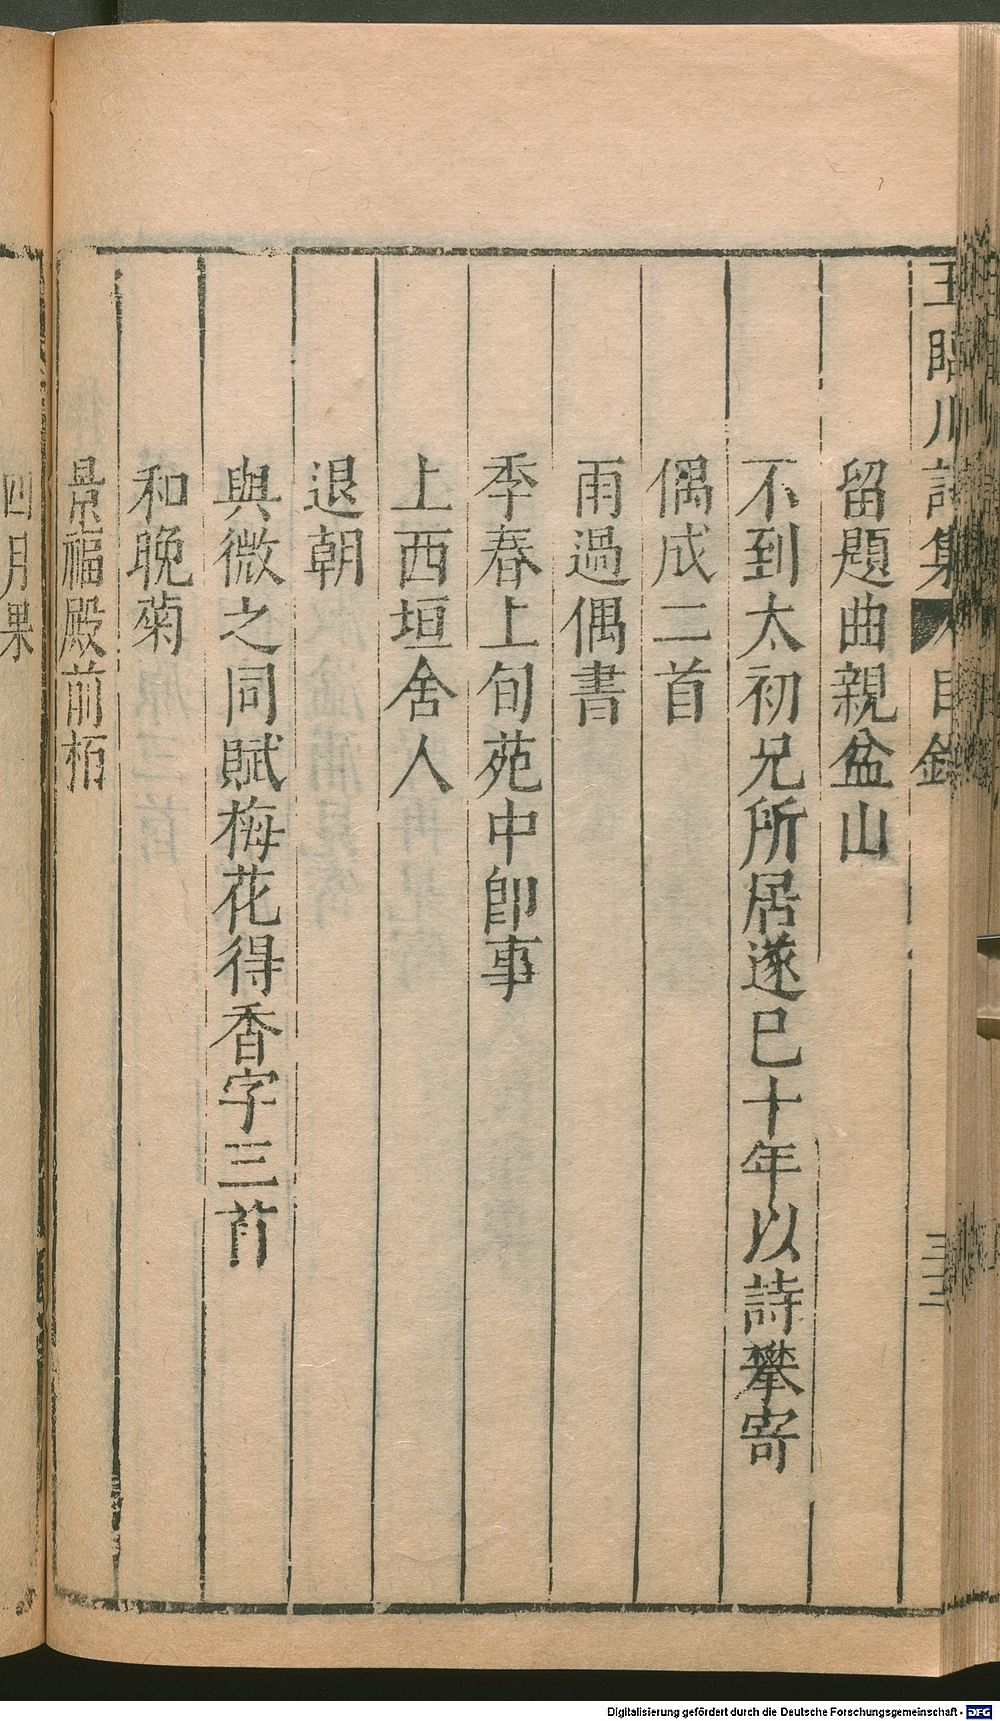 王臨川詩集 目錄
三三
留題曲親盆山
不到太初兄所居遂已十年以詩攀寄
偶成二首
雨過偶書
季春上旬苑中卽事
上西垣舍人
退朝
與微之同賦梅花得香字三首
和晚菊
景福殿前栢
四月果
Digitalisierung gefördert durch die Deutsche Forschungsgemeinschaft - DFG